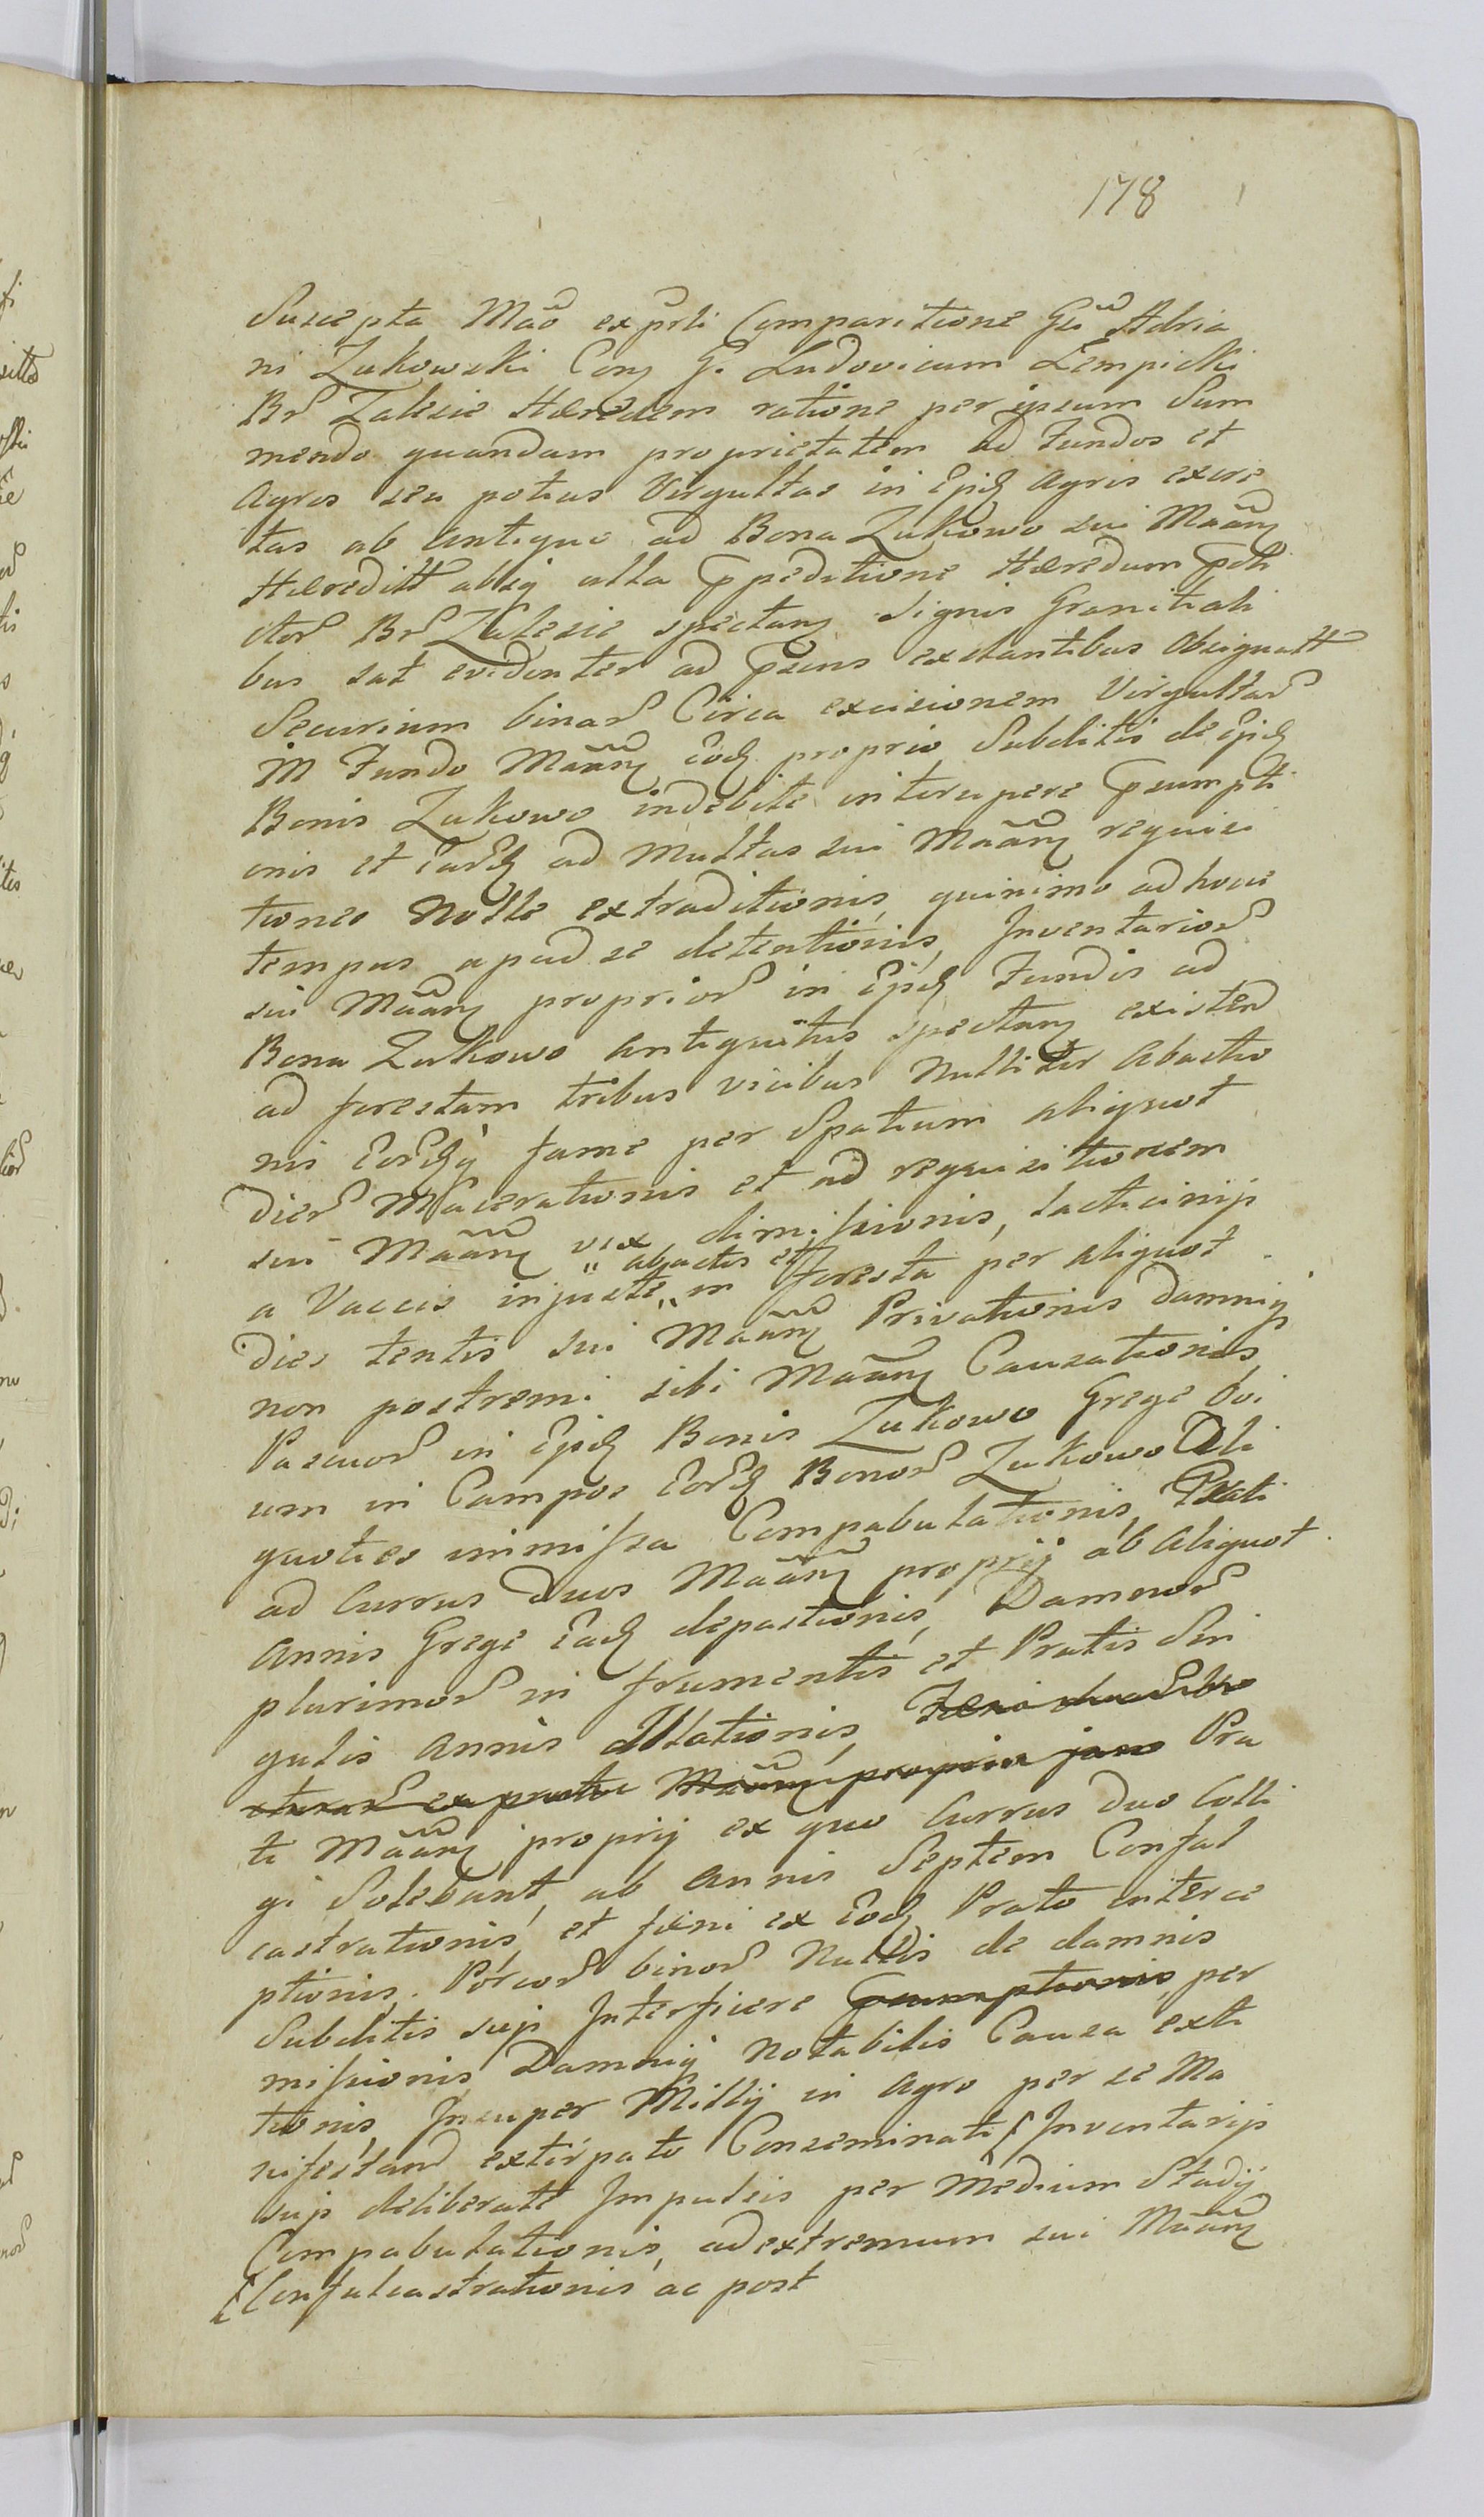 178
Suscepta Mão ex prti Comparitione Gũ Adria
ni Zukowski Con G. Ludovicum Lempicki
Br Zalesie Hæredem ratione per ipsum Sum
mendo quandam proprietatem ad Fundos et
Agros seu potius Virgultas in Eisd Agris excre
tas ab Antiquo ad Bona Zukowo sui Mãañ
Hæreditt absq ulla Ppeditione Hæredum
ctor Br Zalesie spectan Signis Granitiali
bus sat evidenter ad Psens exstantibus Absignatt
Securium binar Circa excisionem Virgultar
in Fundo Mãañ Eod proprio Subditis de Eisd
Bonis Zukowo indebite interupere Psumpti
onis et Eard ad Multas sui Mãañ requisi
tiones Nolle extraditionis, quinimo ad hocce
tempus apud se detentionis, Inventarior
sui Mãañ proprior in Eisd Fundis ad
Bona Zukowo Antiquitus spectan existen
ad forestam tribus vicibus Nulliter Abactio
nis Eordq fame per Spatium aliquot
Dier Macerationis et ad requisitionem
sui Mãañ vix dimissionis, lacticinijs
a Vaccis injuste " abactis et " in foresta per aliquot
Dies tentis sui Mãañ Privationis Damniq
non postremi sibi Mãañ Causationis,
Pascuor in Eisd Bonis Zukowo Grege Ovi
um in Campos Eord Bonor Zukowo Ali
quoties immissa Compabulationis, Prati
ad Currus Duos Mãañ proprij ab Aliquot
Annis Grege Ead depastionis, Damnor
plurimor in frumentis et Pratis Sin
gulis Annis Illationis,
ex Mãañ propria Pra
ti Mãañ proprij ex quo Currus Duo Colli
gi Solebant, ab Annis Septem Confal
castrationis, et fæni ex Eod Prato interce
ptionis, Porcor binor Nullis de damnis
Subditis suis Interficere Psumptionis, per
missionis Damniq Notabilis Causa exti
tionis, Insuper Millij in Agro per se Ma
nifestand extirpato Conseminati Inventarijs
suis deliberate Impulsis per Medium Stadij
Compabulationis, ad extremum sui Mãañ
Confalcastrationis ac post